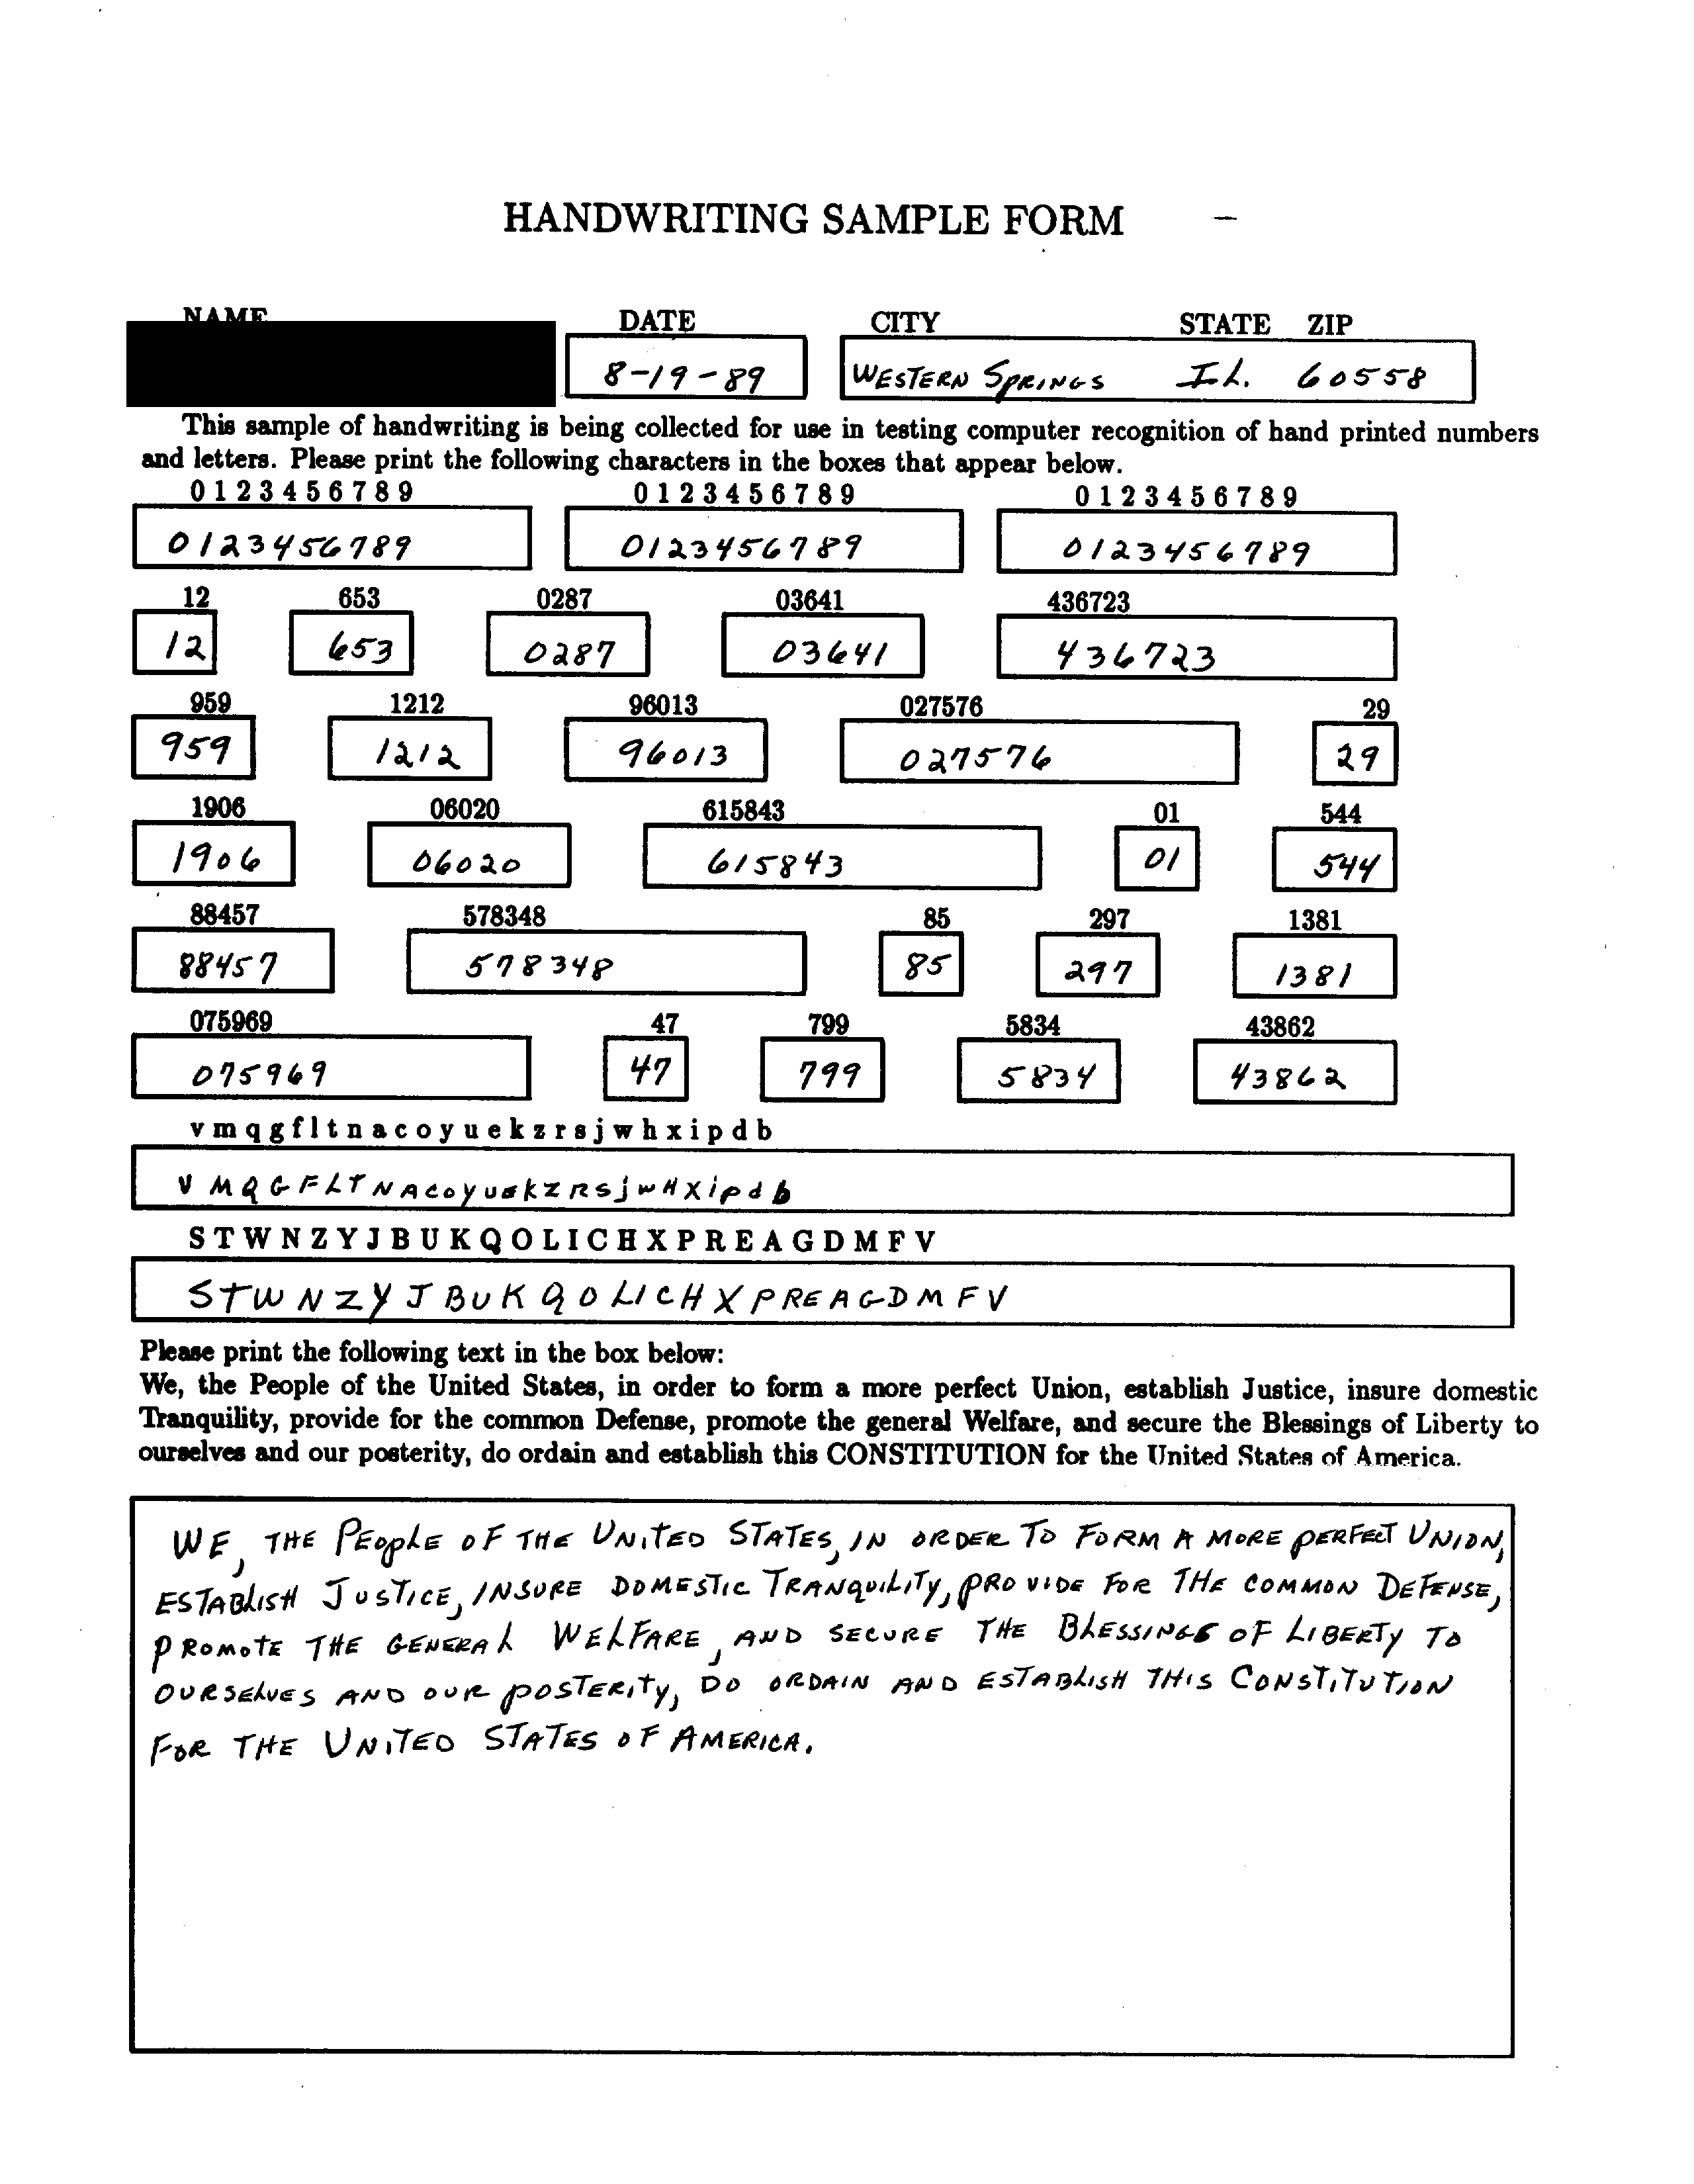 HANDWRITING SAMPLE FORM
NAME DATE CITY STATE ZIP
8-19-89 WESTERN SPRINGS IL. 60558
This sample of handwriting is being collected for use in testing computer recognition of hand printed numbers
and letters. Please print the following characters in the boxes that appear below.
0 1 2 3 4 5 6 7 8 9 0 1 2 3 4 5 6 7 8 9 0 1 2 3 4 5 6 7 8 9
0123456789 0123456789 0123456789
12 653 0287 03641 436723
12 653 0287 03641 436723
959 1212 96013 027576 29
959 1212 96013 027576 29
1906 06020 615843 01 544
1906 06020 615843 01 544
88457 578348 85 297 1381
88457 578348 85 297 1381
075969 47 799 5834 43862
075969 47 799 5834 43862
v m q g f l t n a c o y u e k z r s j w h x i p d b
V M Q G F L T N A c o y u e k Z R S j w H X i p d b
S T W N Z Y J B U K Q O L I C H X P R E A G D M F V
S T W N Z Y J B U K Q O L I C H X P R E A G D M F V
Please print the following text in the box below:
We, the People of the United States, in order to form a more perfect Union, establish Justice, insure domestic
Tranquility, provide for the common Defense, promote the general Welfare, and secure the Blessings of Liberty to
ourselves and our posterity, do ordain and establish this CONSTITUTION for the United States of America.
WE, THE PEOPLE OF THE UNITED STATES, IN ORDER TO FORM A MORE PERFECT UNION,
ESTABLISH JUSTICE, INSURE DOMESTIC TRANQUILITY, PROVIDE FOR THE COMMON DEFENSE,
PROMOTE THE GENERAL WELFARE, AND SECURE THE BLESSINGS OF LIBERTY TO
OURSELVES AND OUR POSTERITY, DO ORDAIN AND ESTABLISH THIS CONSTITUTION
FOR THE UNITED STATES OF AMERICA.